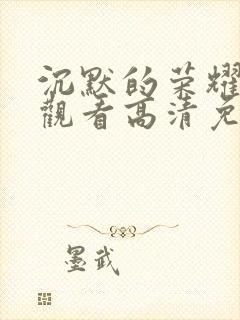 沉默的荣耀
觀看高清免
墨武